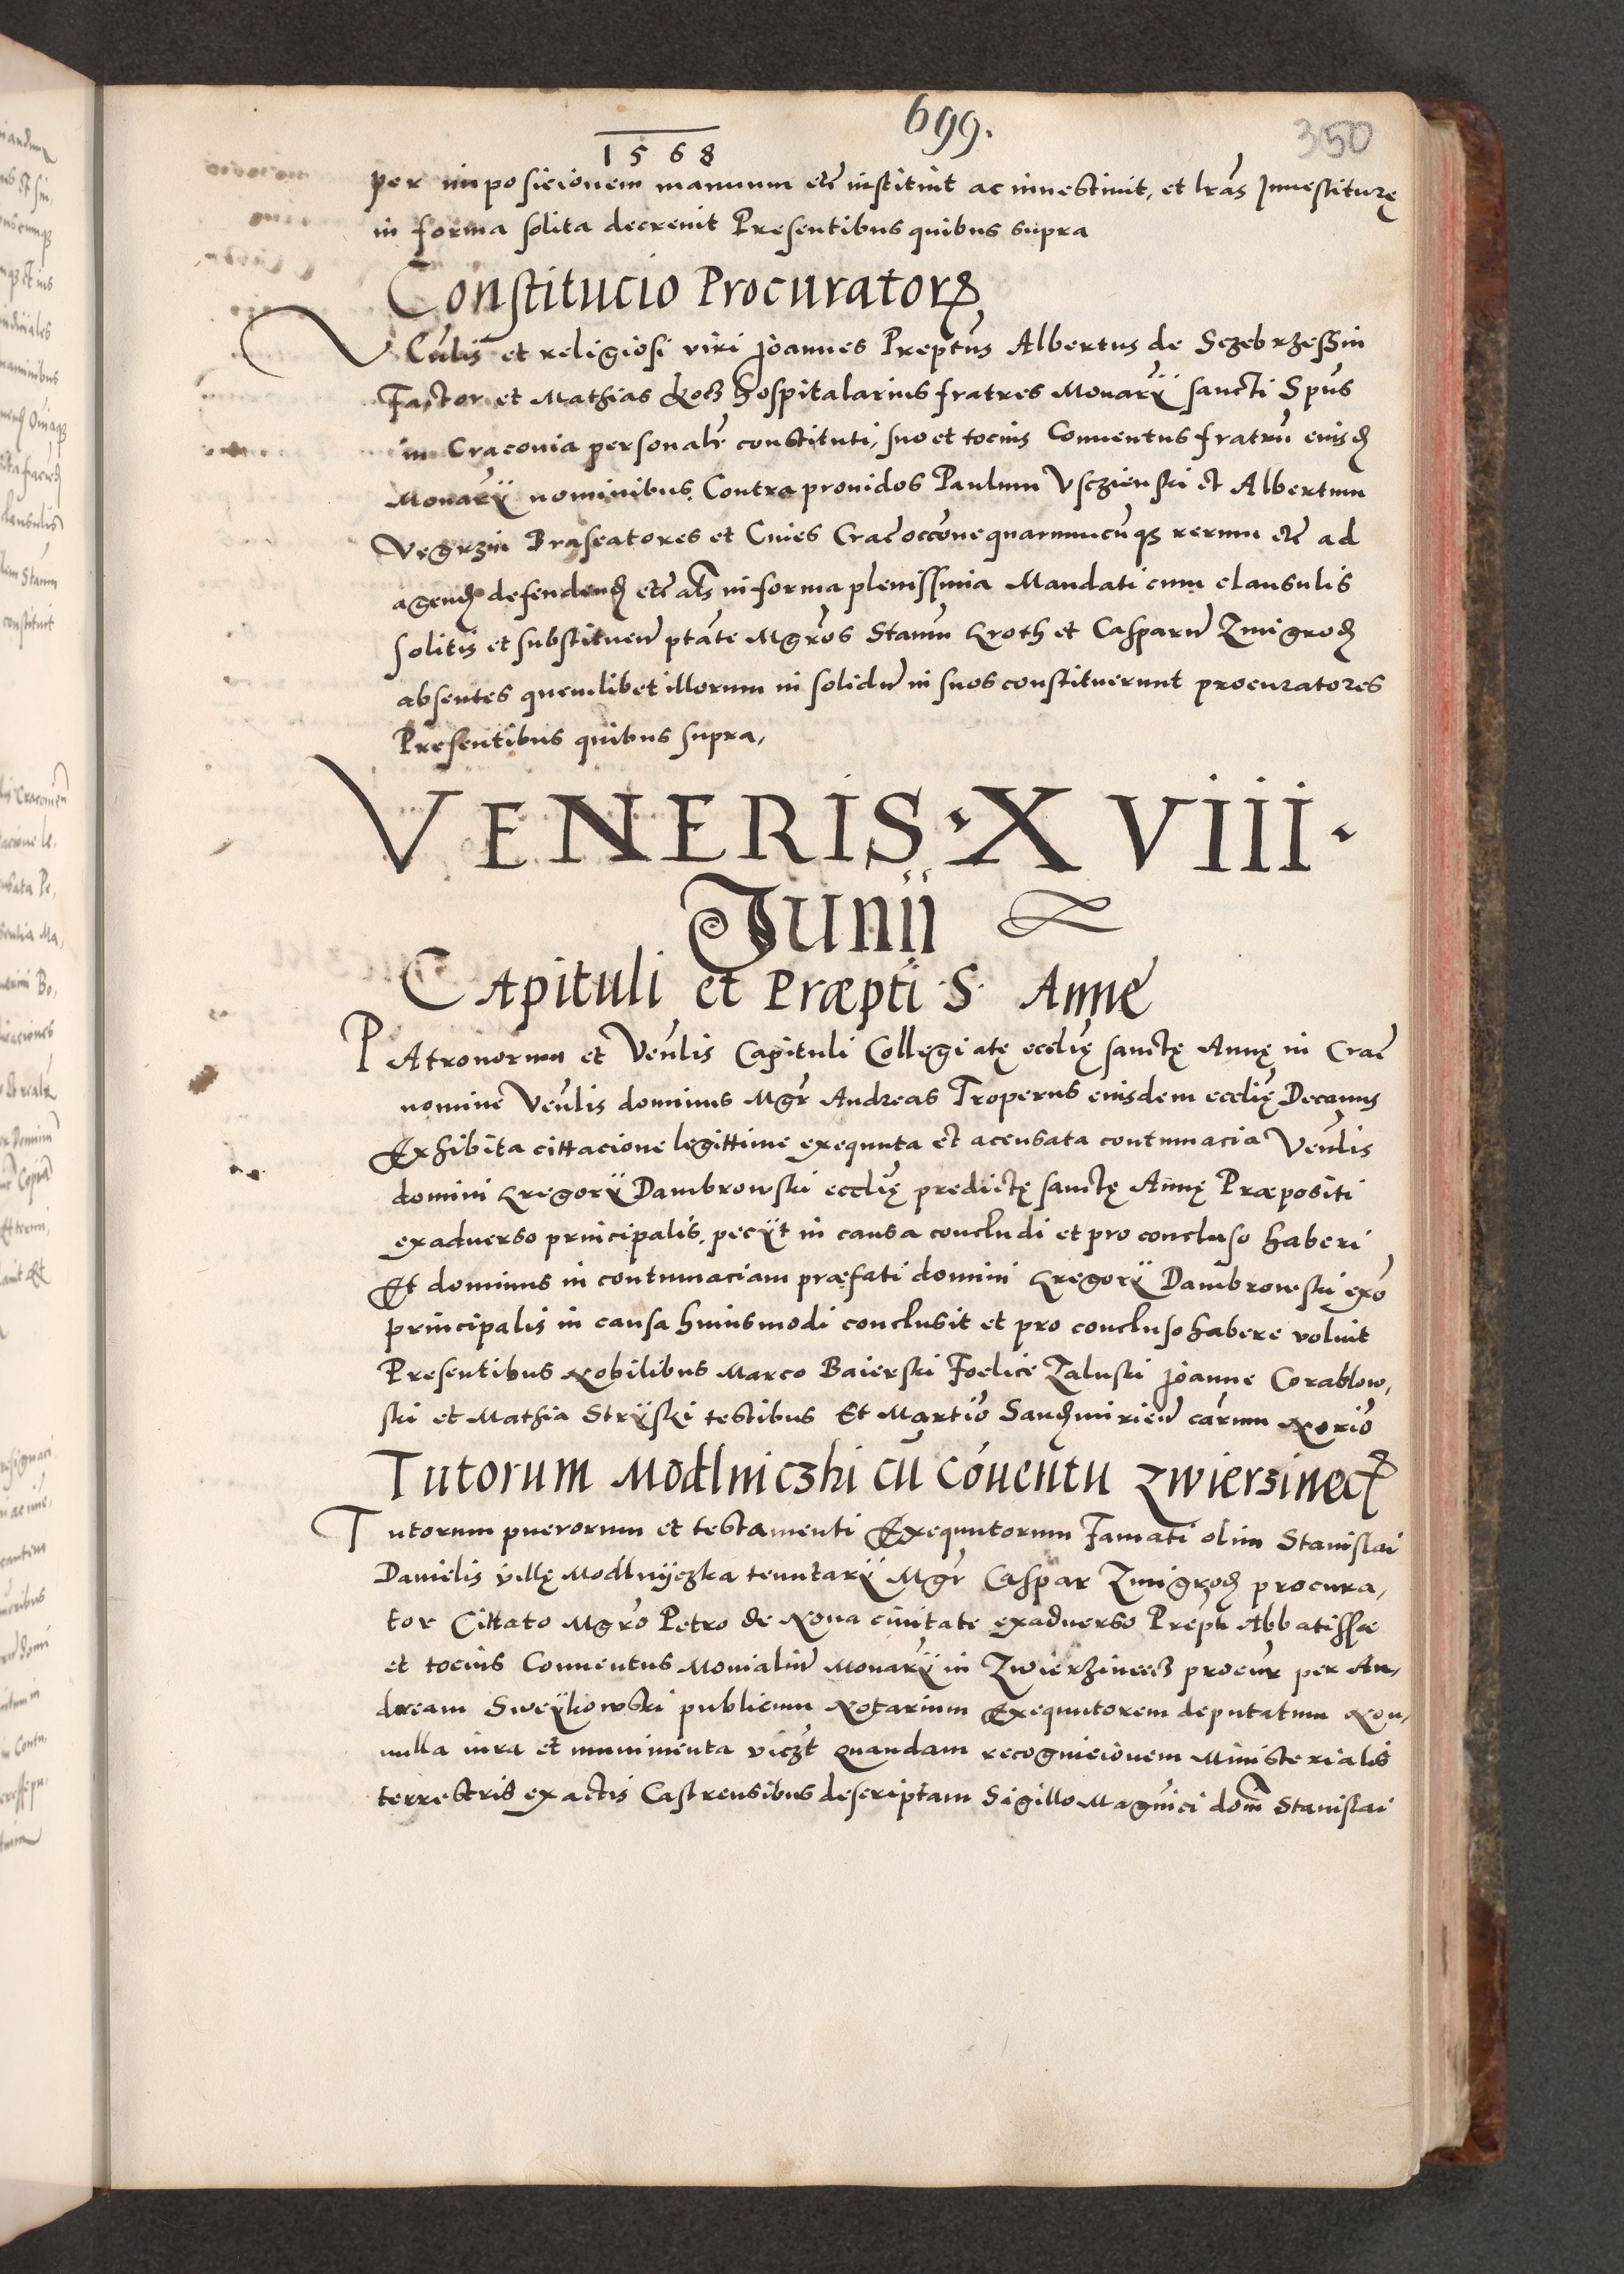 699.
350
1568
per imposicionem manuum etc̄ instituit ac inuestiuit, et lrās Inuestiturę
in forma solita decreuit Presentibus quibus supra
Constitucio Procuratorꝝ
Vēnlis et religiosi viri Joannes Preptūs Albertus de Sczebrzessin
Factor et Mathias Kocz hospitalarius fratres Monarÿ sancti Spūs
in Cracouia personalr̄ constituti, suo et tocius Conuentus fratrū eiusd
Monarÿ nominibus. Contra prouidos Paulum Vsczienski et Albertum
Vegrzin Braseatores et Ciues Crac̄ occōne quarumcūqꝫ rerum etc̄ ad
agend defendend etc̄ als in forma plenissima Mandati cum clausulis
solitis et substituen̄ ptāte Mgrōs Stanūm Kroth et Casparū Zmigrod
absentes quemlibet illorum in solidū in suos constituerunt procuratores
Presentibus quibus supra,
VENERIS · XVIII ·
Junii
Capituli et Præpti S. Anne
PAtronorum et Venlis Capituli Collegiatę ecclię sanctę Annę in Crac̄
nomine Venlis dominus Mgr̄ Andreas Troperus eiusdem ecclię Decanus
Exhibita cittacione legittime exequuta et accusata contumacia Venlis
domini Gregorÿ Dambrowski ecclię predictę sanctę Annę Præpositi
exaduerso principalis, pecÿt in causa concludi et pro concluso haberi
Et dominus in contumaciam præfati domini Gregorÿ Dambrowski exō
principalis in causa huiusmodi conclusit et pro concluso habere voluit
Presentibus Nobilibus Marco Baierski Foelice Zaluski Joanne Corablow,
ski et Mathia Strÿski testibus Et Martiō Sandmirien̄ cārum Noriō
Tutorum Modlniczki cū Cōuentu Zwierzinec
Tutorum puerorum et testamenti Exequutorum Famati olim Stanislai
Danielis villę Modlnÿczka tenutarÿ Mgr̄ Caspar Zmigrod procura,
tor Cittato Mgrō Petro de Noua ciuitate exaduerso Prepte Abbatissæ
et tocius Conuentus Monialiū Monarÿ in Zwierzineecz procur̄ per An,
dream Sweÿkowski publicum Notarium Exequutorem deputatum Non,
nulla iura et munimenta viczt quandam recognicionem Ministerialis
terrestris ex actis Castrensibus descriptam Sigillo Magnici domī Stanislai